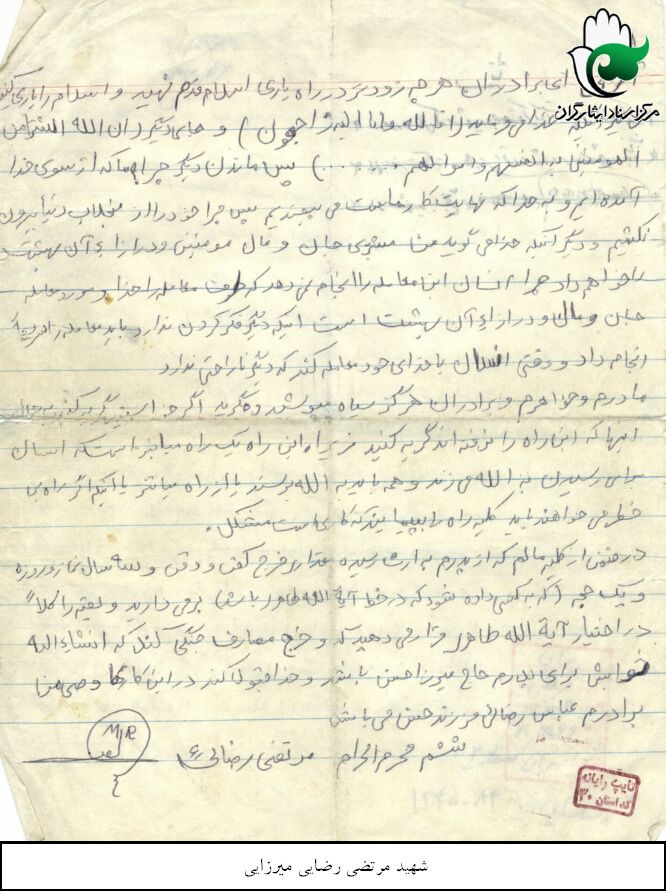 مرکز اسناد ایثارگران
ای برادران هر چه زودتر در راه یاری اسلام قدم نهید و اسلام را یاری کنید
می فرماید (انا لله وانا الیه راجعون) و جای دیگر (ان الله اشترا من
المومنین به انفسهم واموالهم .....) پس ماندن دیگر چرا ما که از سوی خدا
آمده ایم و به خدا که نهایت می پس چرا خود را از منجلاب دنیا بیرون
نکشیم و دیگر آنکه خدا می گوید من مشتری جان و مال مومنین و در ازاء آن بهشت
را خواهم داد چرا انسان این معامله را انجام نمی دهد که طرف معامله را خدا و مورد معامله
جان و مال و در ازاء آن بهشت است اینکه دیگر فکر کردن ندارد باید معامله را
انجام داد و وقتی انسان با خدای خود معامله کند که دیگر ناراحتی ندارد
مادرم و خواهرم و برادران هرگز سیاه نپوشند و اگر چه گریه کنند
اینها که این راه را نرفته اند گریه کنید زیرا این راه یک راه میانبر است که انسان
برای رسیدن به الله می زند و همه باید به الله برسند یا از راه میانبر یا اگر راه بی
خطر می خواهند باید کلیه راه را بپیمایند که کاری است مشکل.
در ضمن از کلیه مالم که از پدرم به ارث رسیده مقداری خرج کفن و دفن و سه سال نماز و روزه
و یک حجه (که به کسی داده شود که در خط آیة الله طاهری باشد) برمی دارید و بقیه را کلاً
در اختیار آیة الله طاهری قرار می دهید که و خرج مصارف جنگی کنند که انشاءالله
ثوابش برای پدرم حاج میرزا حسن باشد و خدا قبول کند در این کارها وصی من
برادرم عباس رضائی فرزند حسن می باشد
ششم محرم الحرام مرتضی رضائی
تایپ رایانه
کد استان ۳۰
شهید مرتضی رضایی میرزایی